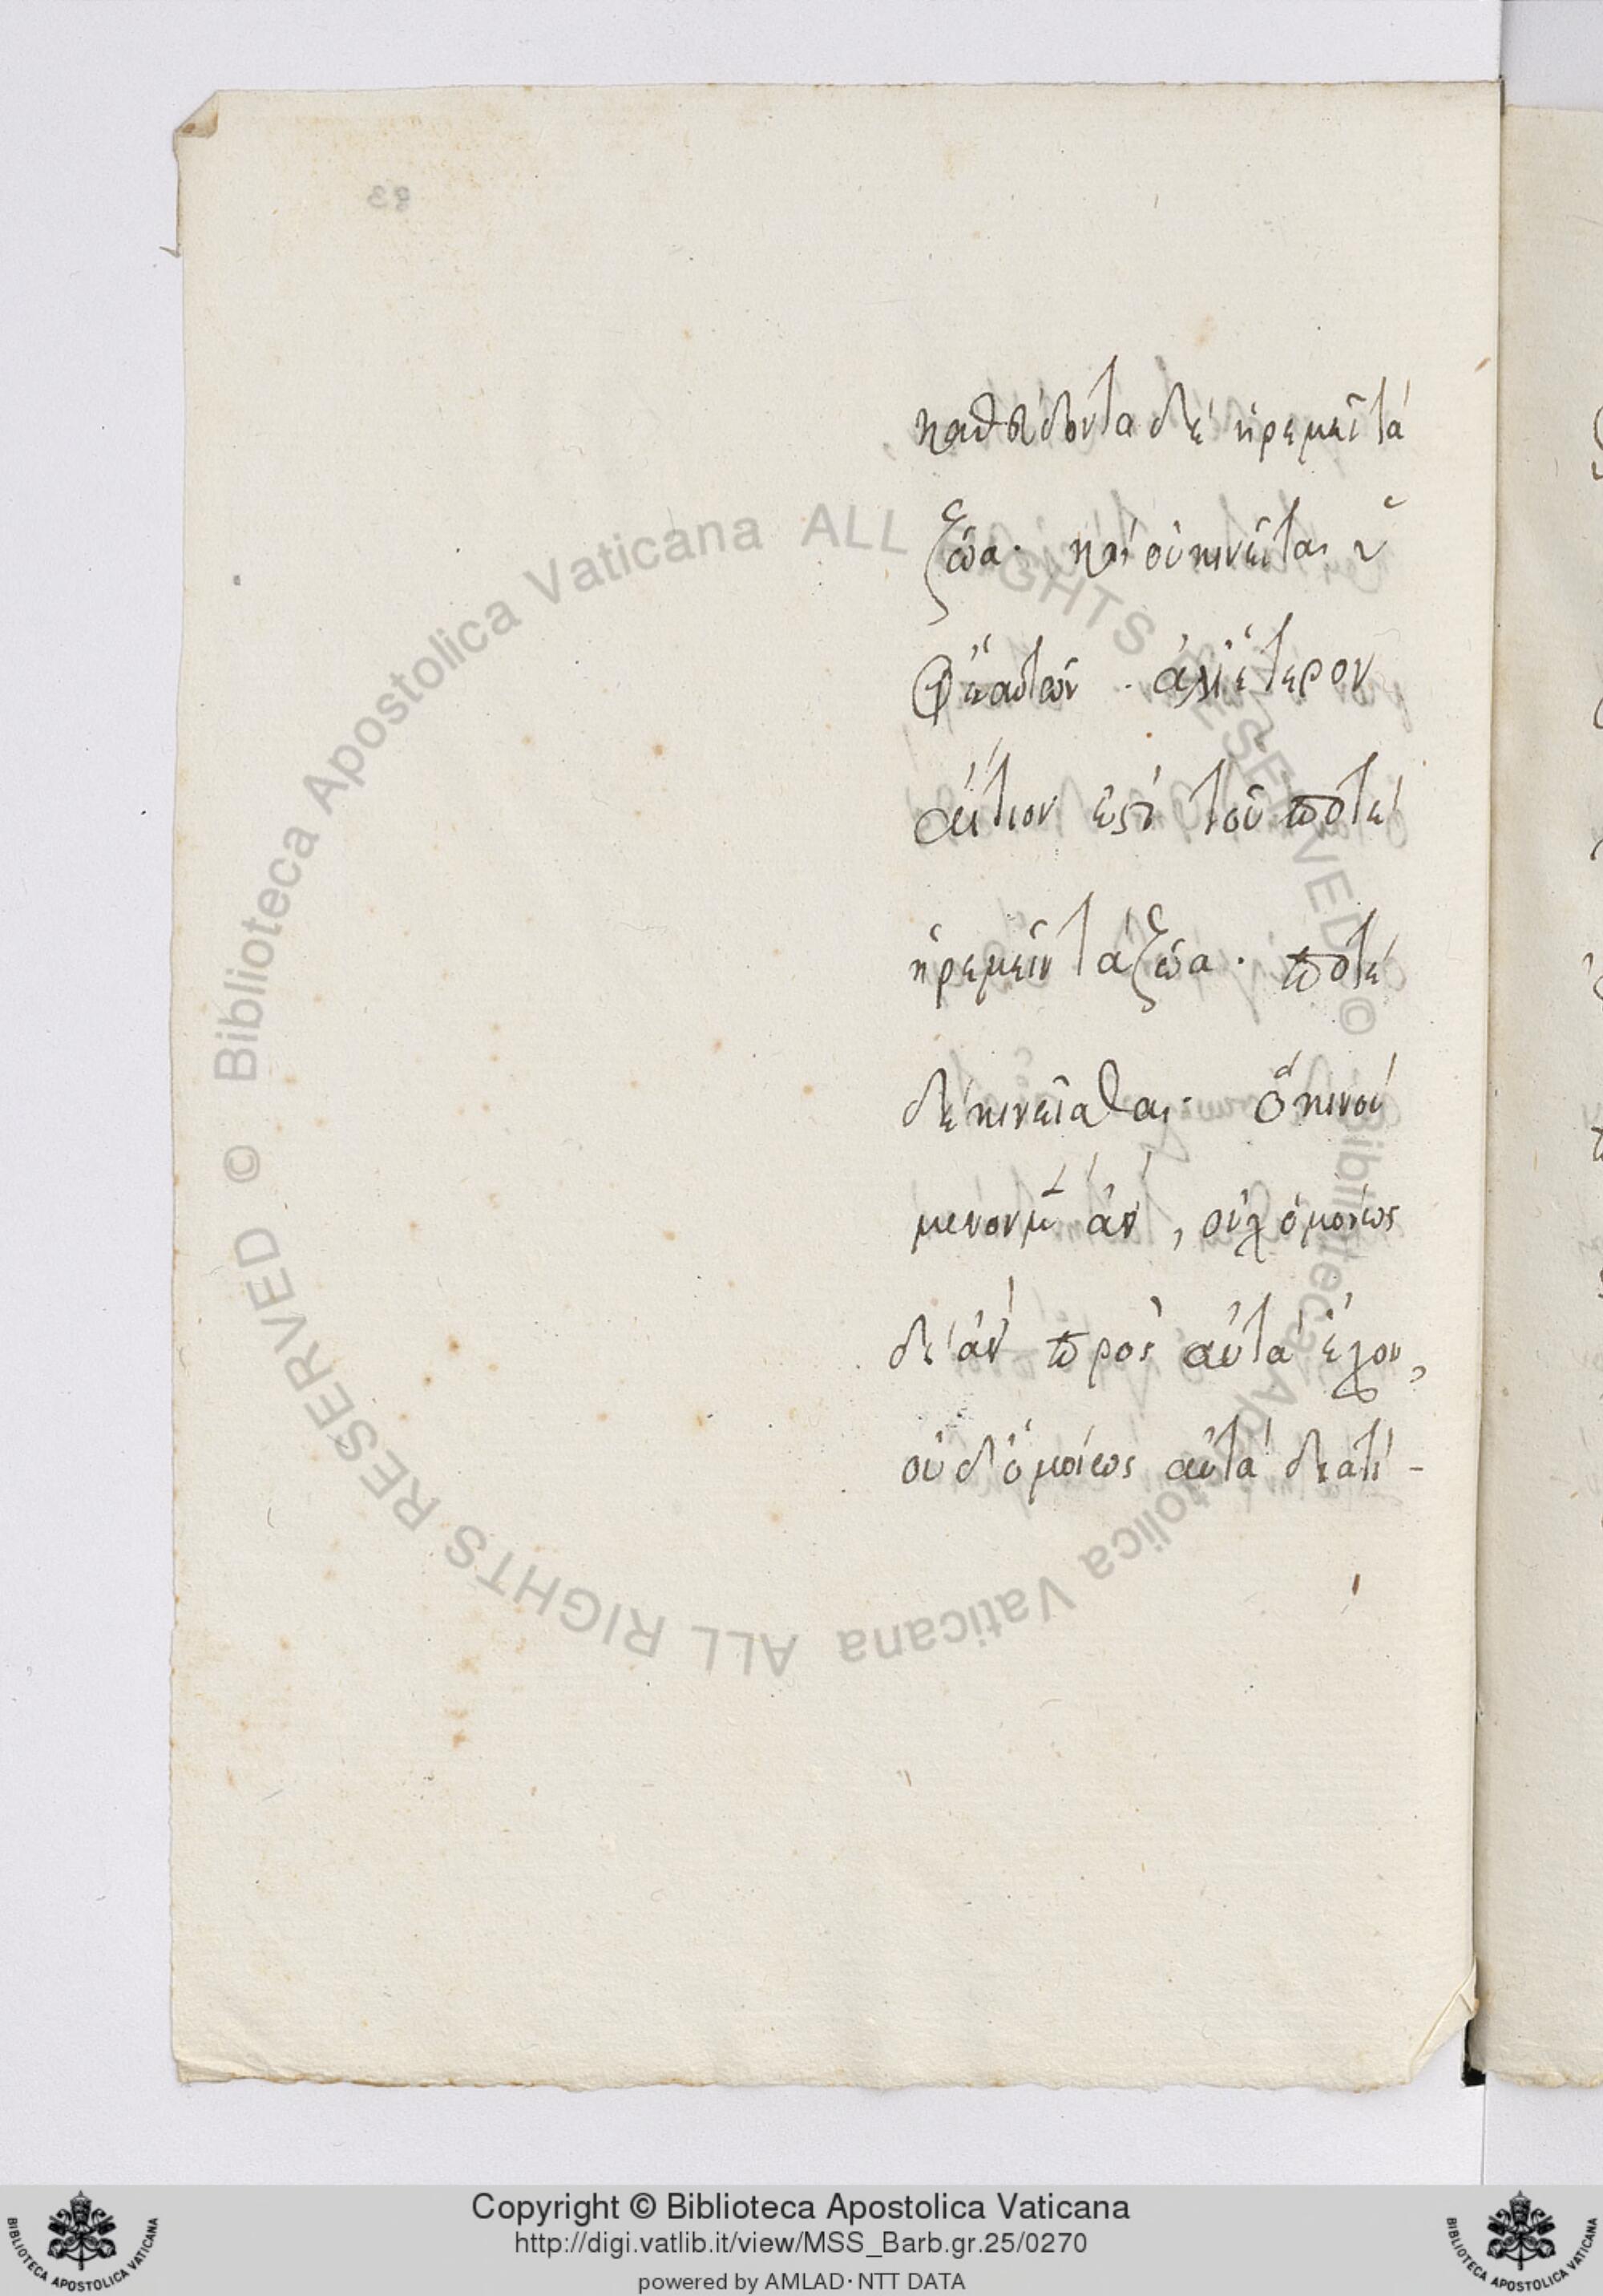 καθεύδοντα δὲ ἠρεμεῖ τὰ
ζῶα· καὶ οὐ κινεῖται
ἑαυτῶν · ἀλλ' ἕτερον
αἴτιόν ἐστι τοῦ ποτὲ
ἠρεμεῖν τὰ ζῶα· ποτὲ
δὲ κινεῖσθαι· ὃ κινού
μενον μὲν ἂν, οὐχ ὁμοίως
δὲ ἂν πρὸς αὐτὰ ἔχον,
οὐδ' ὁμοίως αὐτὰ διατι-
83
Biblioteca Apostolica Vaticana ALL RIGHTS RESERVED ©
Biblioteca Apostolica Vaticana ALL RIGHTS RESERVED ©
Copyright © Biblioteca Apostolica Vaticana
http://digi.vatlib.it/view/MSS_Barb.gr.25/0270
powered by AMLAD·NTT DATA
BIBLIOTECA APOSTOLICA VATICANA
BIBLIOTECA APOSTOLICA VATICANA